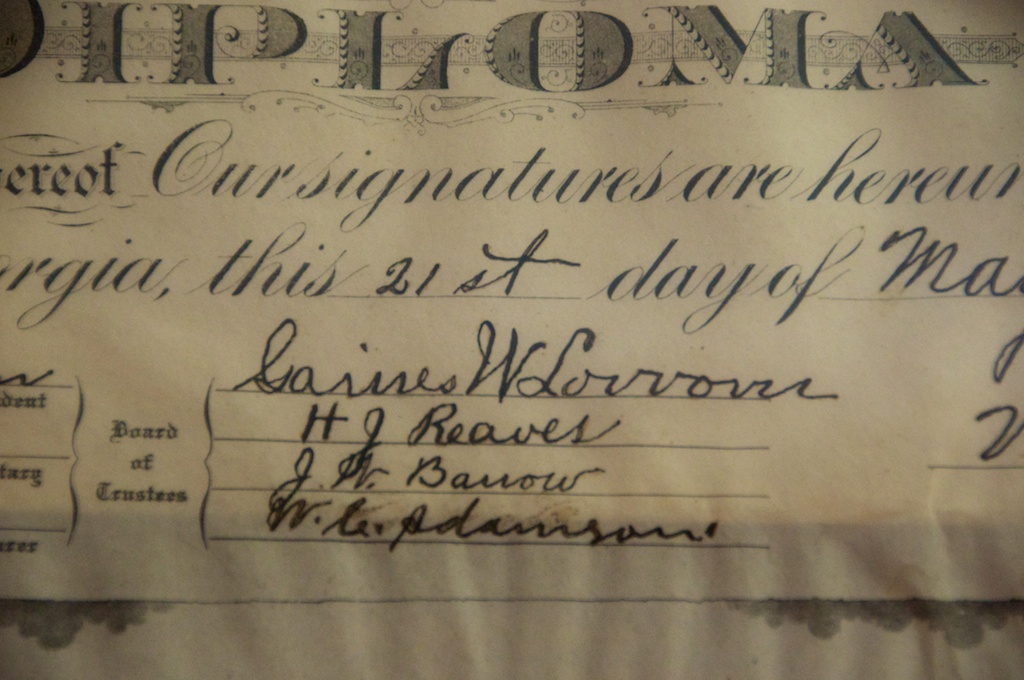 DIPLOMA
hereof Our signatures are hereun
orgia, this 21st day of Ma
Gaines W Lovvorn
dent
H J Reaves
Board
of
Trustees
J. W. Barrow
tary
W. C. Adamson.
urer